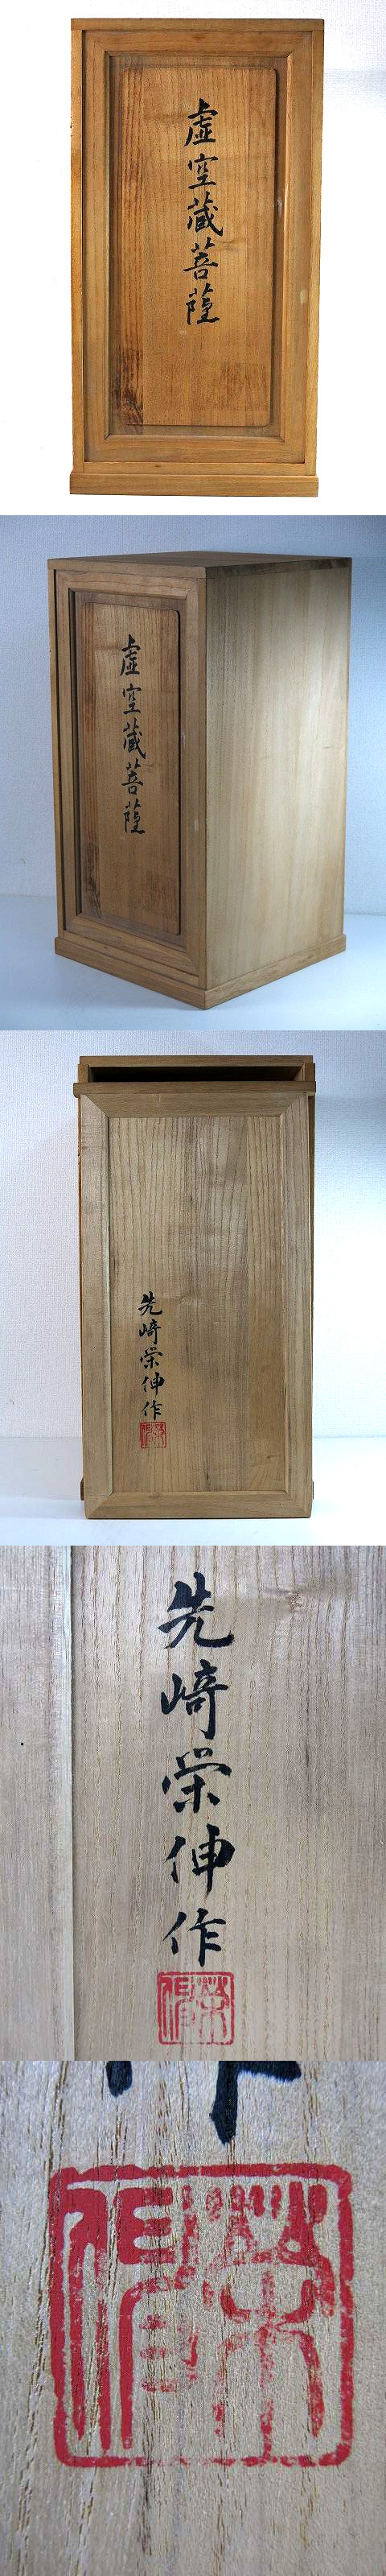 虚空蔵菩薩
虚空蔵菩薩
先崎栄伸作
先崎栄伸作